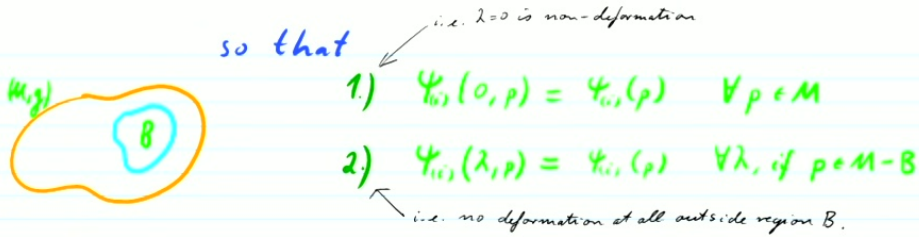 i.e. λ=0 is non-deformation
so that
(M,g)
1.) Ψ₍ᵢ₎(0,p) = Ψ₍ᵢ₎(p) ∀ p ∈ M
B
2.) Ψ₍ᵢ₎(λ,p) = Ψ₍ᵢ₎(p) ∀λ, if p ∈ M-B
i.e. no deformation at all outside region B.